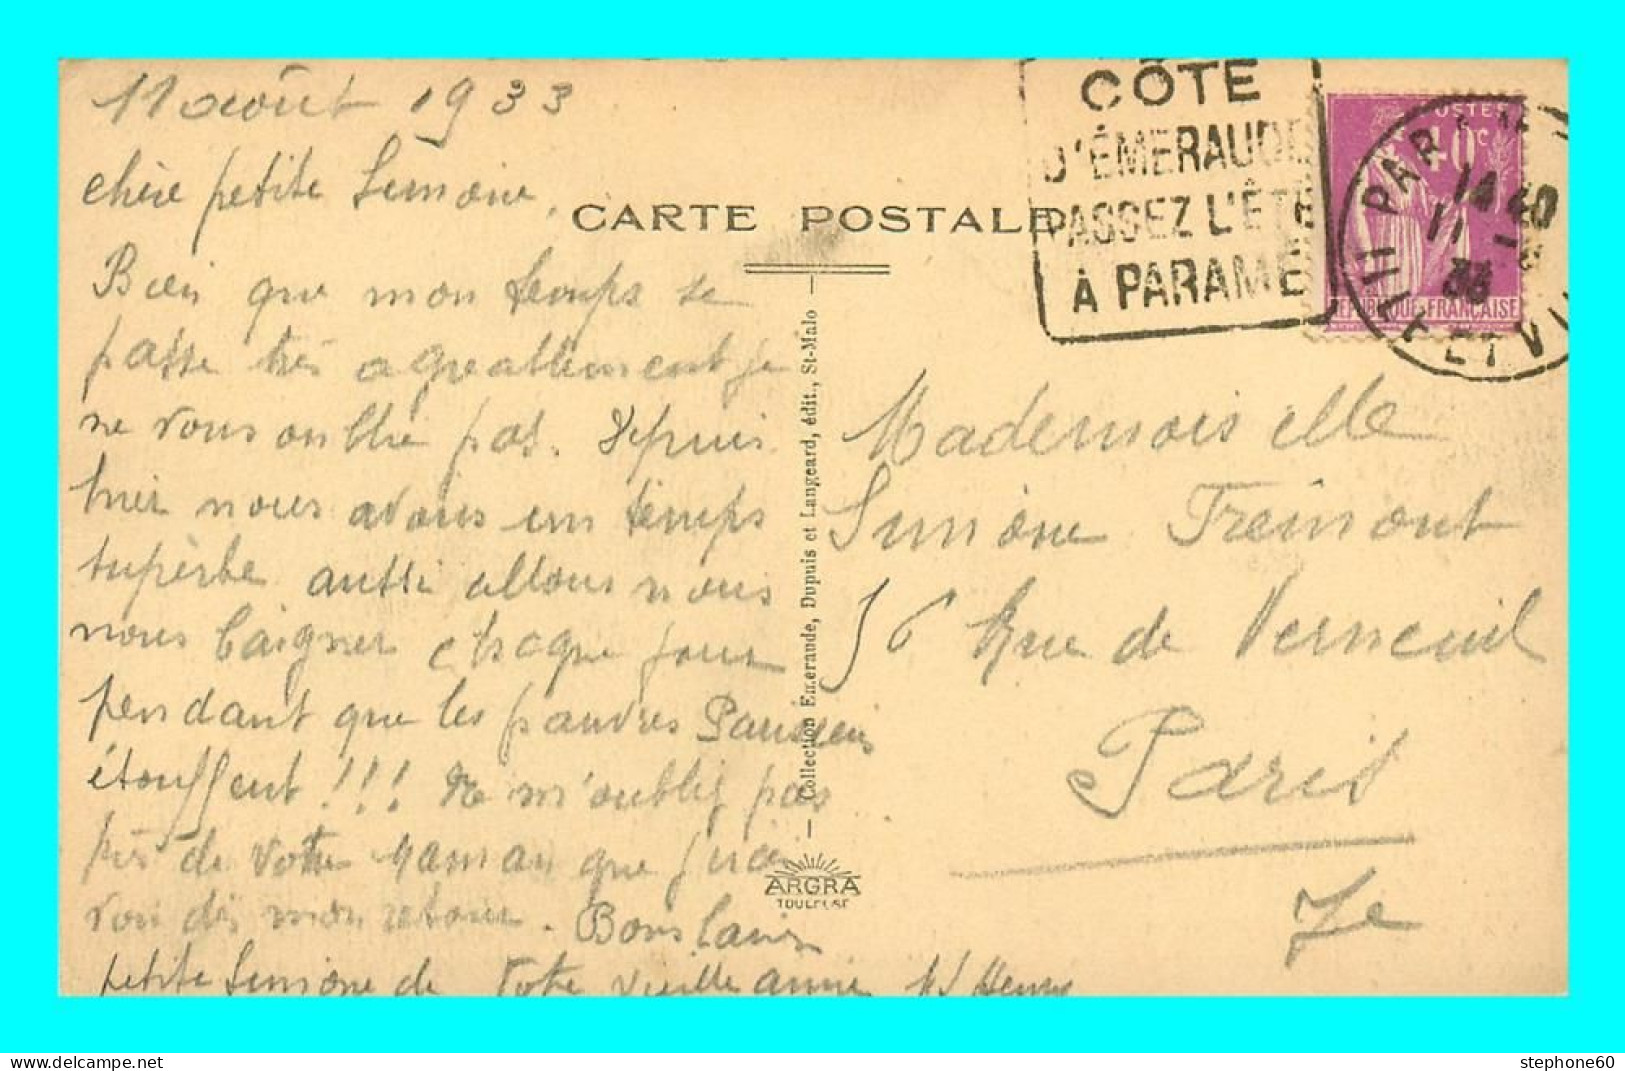 11 août 1933
chère petite Simone,
Bien que mon temps se
passe très agreablement je
ne vous oublie pas. Depuis
hier nous avons un temps
superbe aussi allons nous
nous baigner chaque jour
pendant que les pauvres Parisiens
étouffent !!! Ne m'oubliez pas
près de votre Maman que j'irai
voir dès mon retour. Bons baisers
petite Simone de votre vieille amie
CARTE POSTALE
Collection Emeraude, Dupuis et Langeard, édit., St-Malo
ARGRA
TOULOUSE
CÔTE
D'ÉMERAUDE
PASSEZ L'ÉTÉ
À PARAMÉ
POSTES
40c
REPUBLIQUE FRANÇAISE
PARAMÉ
14 40
11
33
ILLE ET VI
Mademoiselle
Simone Trémont
56 Rue de Verneuil
Paris
7e
stephone60